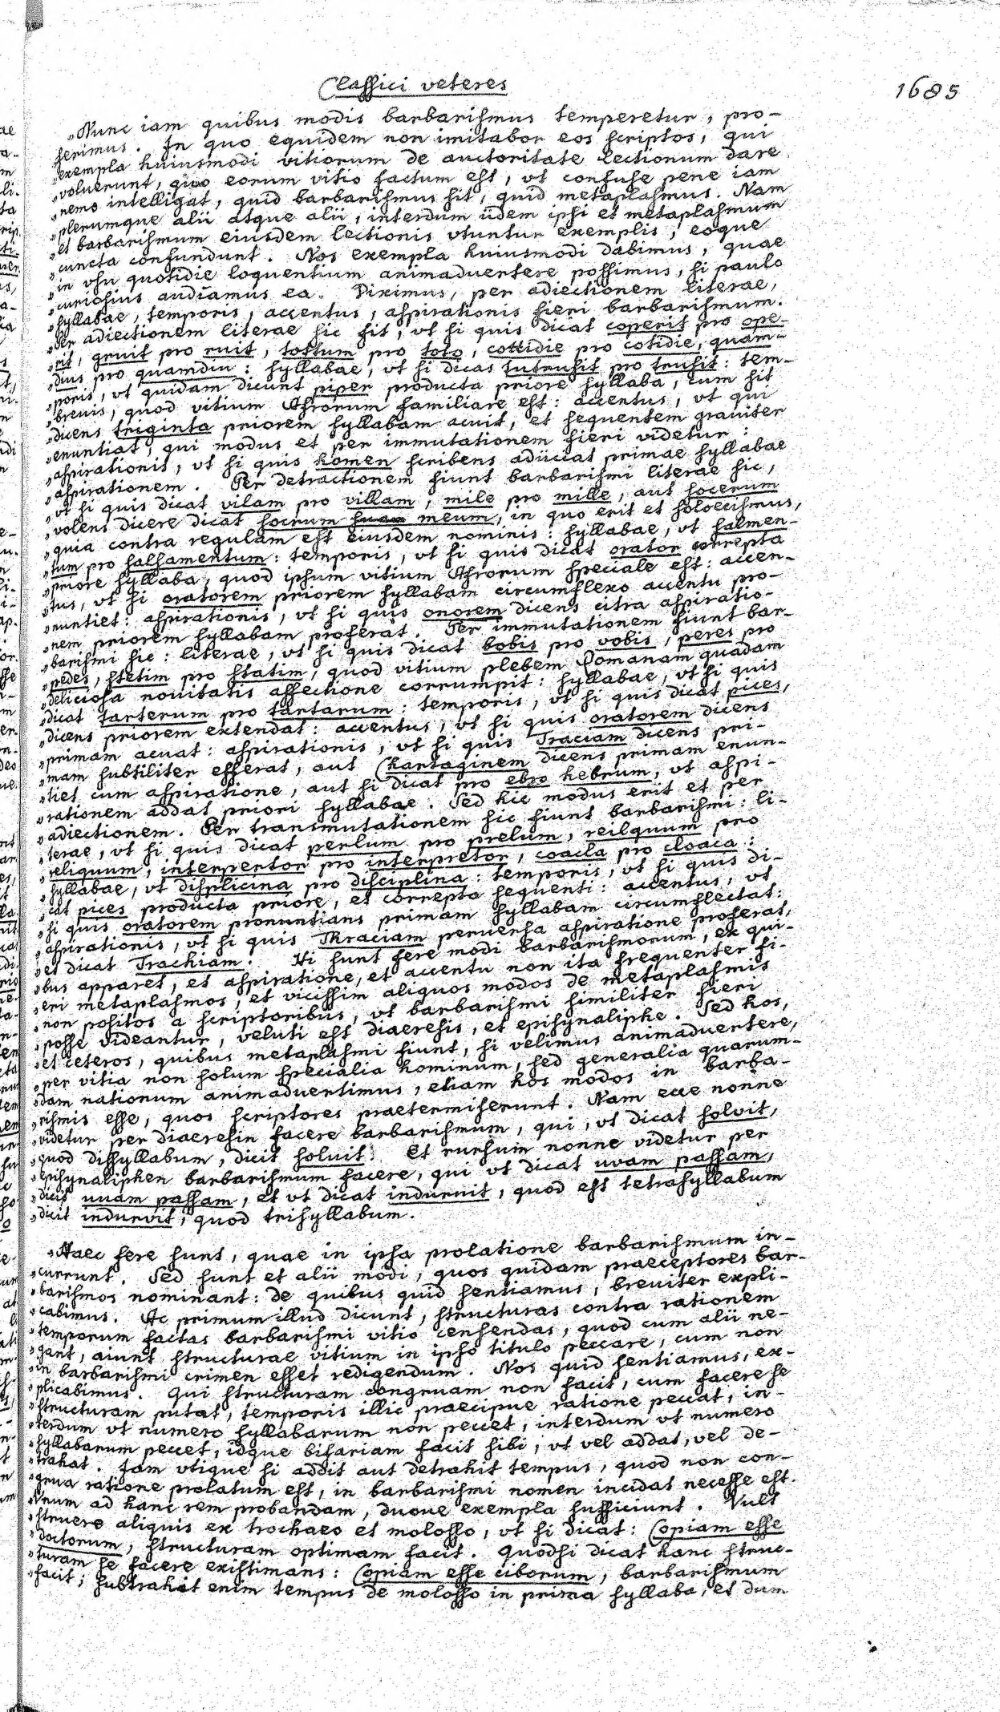 Classici veteres
1685
"Nunc iam quibus modis barbarismus temperetur, pro-
"ferimus. In quo equidem non imitabor eos scriptos, qui
"exempla huiusmodi vitiorum de auctoritate lectionum dare
"voluerunt, quo eorum vitio factum est, vt confuse pene iam
"nemo intelligat, quid barbarismus sit, quid metaplasmus. Nam
"plerumque alii atque alii, interdum iidem ipsi et metaplasmum
"et barbarismum eiusdem lectionis vtuntur exemplis, eoque
"cuncta confundunt. Nos exempla huiusmodi dabimus, quae
"in vsu quotidie loquentium animaduertere possimus, si paulo
"curiosius audiamus ea. Diximus, per adiectionem literae,
"syllabae, temporis, accentus, aspirationis fieri barbarismum.
"Per adiectionem literae sic fit, vt si quis dicat coperit pro ope-
"rit, gruit pro ruit, tottum pro toto, cottidie pro cotidie, quam-
"dius pro quamdiu: syllabae, vt si dicas tutrusit pro trusit: tem-
"poris, vt quidam dicunt piper producta priore syllaba, cum sit
"breuis, quod vitium Afrorum familiare est: accentus, vt qui
"dicens triginta priorem syllabam acuit, et sequentem grauiter
"enuntiat, qui modus et per immutationem fieri videtur:
"aspirationis, vt si quis homen scribens adiiciat primae syllabae
"aspirationem. Per detractionem fiunt barbarismi literae sic,
"vt si quis dicat vilam pro villam, mile pro mille, aut socerum
"volens dicere dicat socrum meum, in quo erit et soloecismus,
"quia contra regulam est eiusdem nominis: syllabae, vt salmen-
"tum pro salsamentum: temporis, vt si quis dicat orator correpta
"priore syllaba, quod ipsum vitium Afrorum speciale est: accen-
"tus, vt si oratorem priorem syllabam circumflexo accentu pro-
"nuntiet: aspirationis, vt si quis onorem dicens citra aspiratio-
"nem priorem syllabam proferat. Per immutationem fiunt bar-
"barismi sic: literae, vt si quis dicat bobis pro vobis, peres pro
"pedes, stetim pro statim, quod vitium plebem Romanam quadam
"deliciosa nouitatis affectione corrumpit: syllabae, vt si quis
"dicat tarterum pro tartarum: temporis, vt si quis dicat pices,
"dicens priorem extendat: accentus, vt si quis oratorem dicens
"primam acuat: aspirationis, vt si quis Traciam dicens pri-
"mam subtiliter efferat, aut Chartaginem dicens primam enun-
"tiet cum aspiratione, aut si dicat pro ebro hebrum, vt aspi-
"rationem addat priori syllabae. Sed hic modus erit et per
"adiectionem. Per transmutationem sic fiunt barbarismi: li-
"terae, vt si quis dicat perlum pro prelum, reilquum pro
"reliquum, interpertor pro interpretor, coacla pro cloaca:
"syllabae, vt displicina pro disciplina: temporis, vt si quis di-
"cat pices producta priore, et correpta sequenti: accentus, vt
"si quis oratorem pronuntians primam syllabam circumflectat:
"aspirationis, vt si quis Thraciam peruersa aspiratione proferat,
"et dicat Trachiam. Hi sunt fere modi barbarismorum, ex qui-
"bus apparet, et aspiratione, et accentu non ita frequenter fi-
"eri metaplasmos, et vicissim aliquos modos de metaplasmis
"non positos a scriptoribus, vt barbarismi similiter fieri
"posse videantur, veluti est diaeresis, et episynaliphe. Sed hos,
"et ceteros, quibus metaplasmi fiunt, si velimus animaduertere,
"per vitia non solum specialia hominum, sed generalia quarum-
"dam nationum animaduertimus, etiam hos modos in barba-
"rismis esse, quos scriptores praetermiserunt. Nam ecce nonne
"videtur per diaeresin facere barbarismum, qui, vt dicat solvit,
"quod dissyllabum, dicit soluit: Et rursum nonne videtur per
"episynaliphen barbarismum facere, qui vt dicat uvam passam,
"dicit uuam passam, et vt dicat induruit, quod est tetrasyllabum
"dicit indurvit, quod trisyllabum.
"Haec fere sunt, quae in ipsa prolatione barbarismum in-
"currunt. Sed sunt et alii modi, quos quidam praeceptores bar-
"barismos nominant: de quibus quid sentiamus, breuiter expli-
"cabimus. Ac primum illud dicunt, structuras contra rationem
"temporum factas barbarismi vitio censendas, quod cum alii ne-
"gant, aiunt structurae vitium in ipso titulo peccare, cum non
"in barbarismi crimen esset redigendum. Nos quid sentiamus, ex-
"plicabimus. Qui structuram congruam non facit, cum facere se
"structuram putat, temporis illic praecipue ratione peccat, in-
"terdum vt numero syllabarum non peccet, interdum vt numero
"syllabarum peccet, idque bifariam facit sibi, vt vel addat, vel de-
"trahat. Iam vtique si addit aut detrahit tempus, quod non con-
"grua ratione prolatum est, in barbarismi nomen incidat necesse est.
"Vnum ad hanc rem probandam, duove exempla sufficiunt. Vult
"struere aliquis ex trochaeo et molosso, vt si dicat: Copiam esse
"doctorum, structuram optimam facit. Quodsi dicat hanc struc-
"turam se facere existimans: Copiam esse ciborum, barbarismum
"facit; subtrahit enim tempus de molosso in prima syllaba, et dum